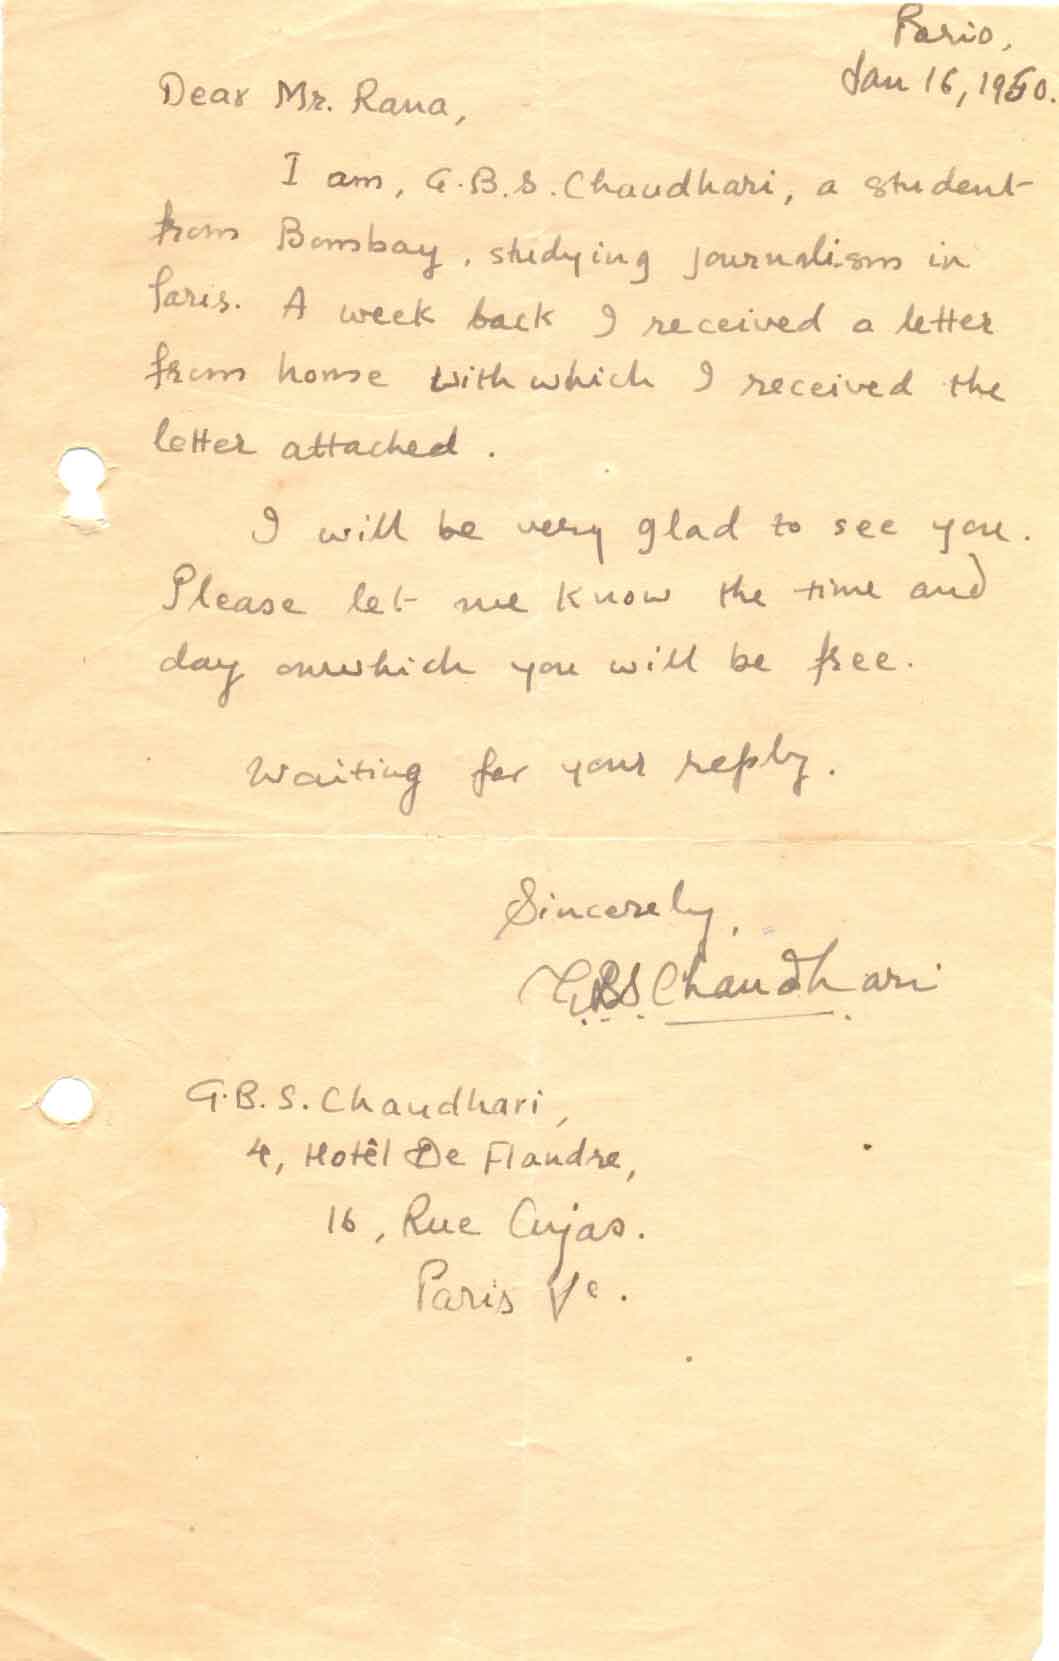 Paris,
Jan 16, 1950.
Dear Mr. Rana,
I am, G.B.S. Chaudhari, a student
from Bombay, studying journalism in
Paris. A week back I received a letter
from home with which I received the
letter attached.
I will be very glad to see you.
Please let me know the time and
day on which you will be free.
Waiting for your reply.
Sincerely,
G.B.S Chaudhari
G.B.S. Chaudhari,
4, Hotêl De Flandre,
16, Rue Cujas.
Paris Ve.